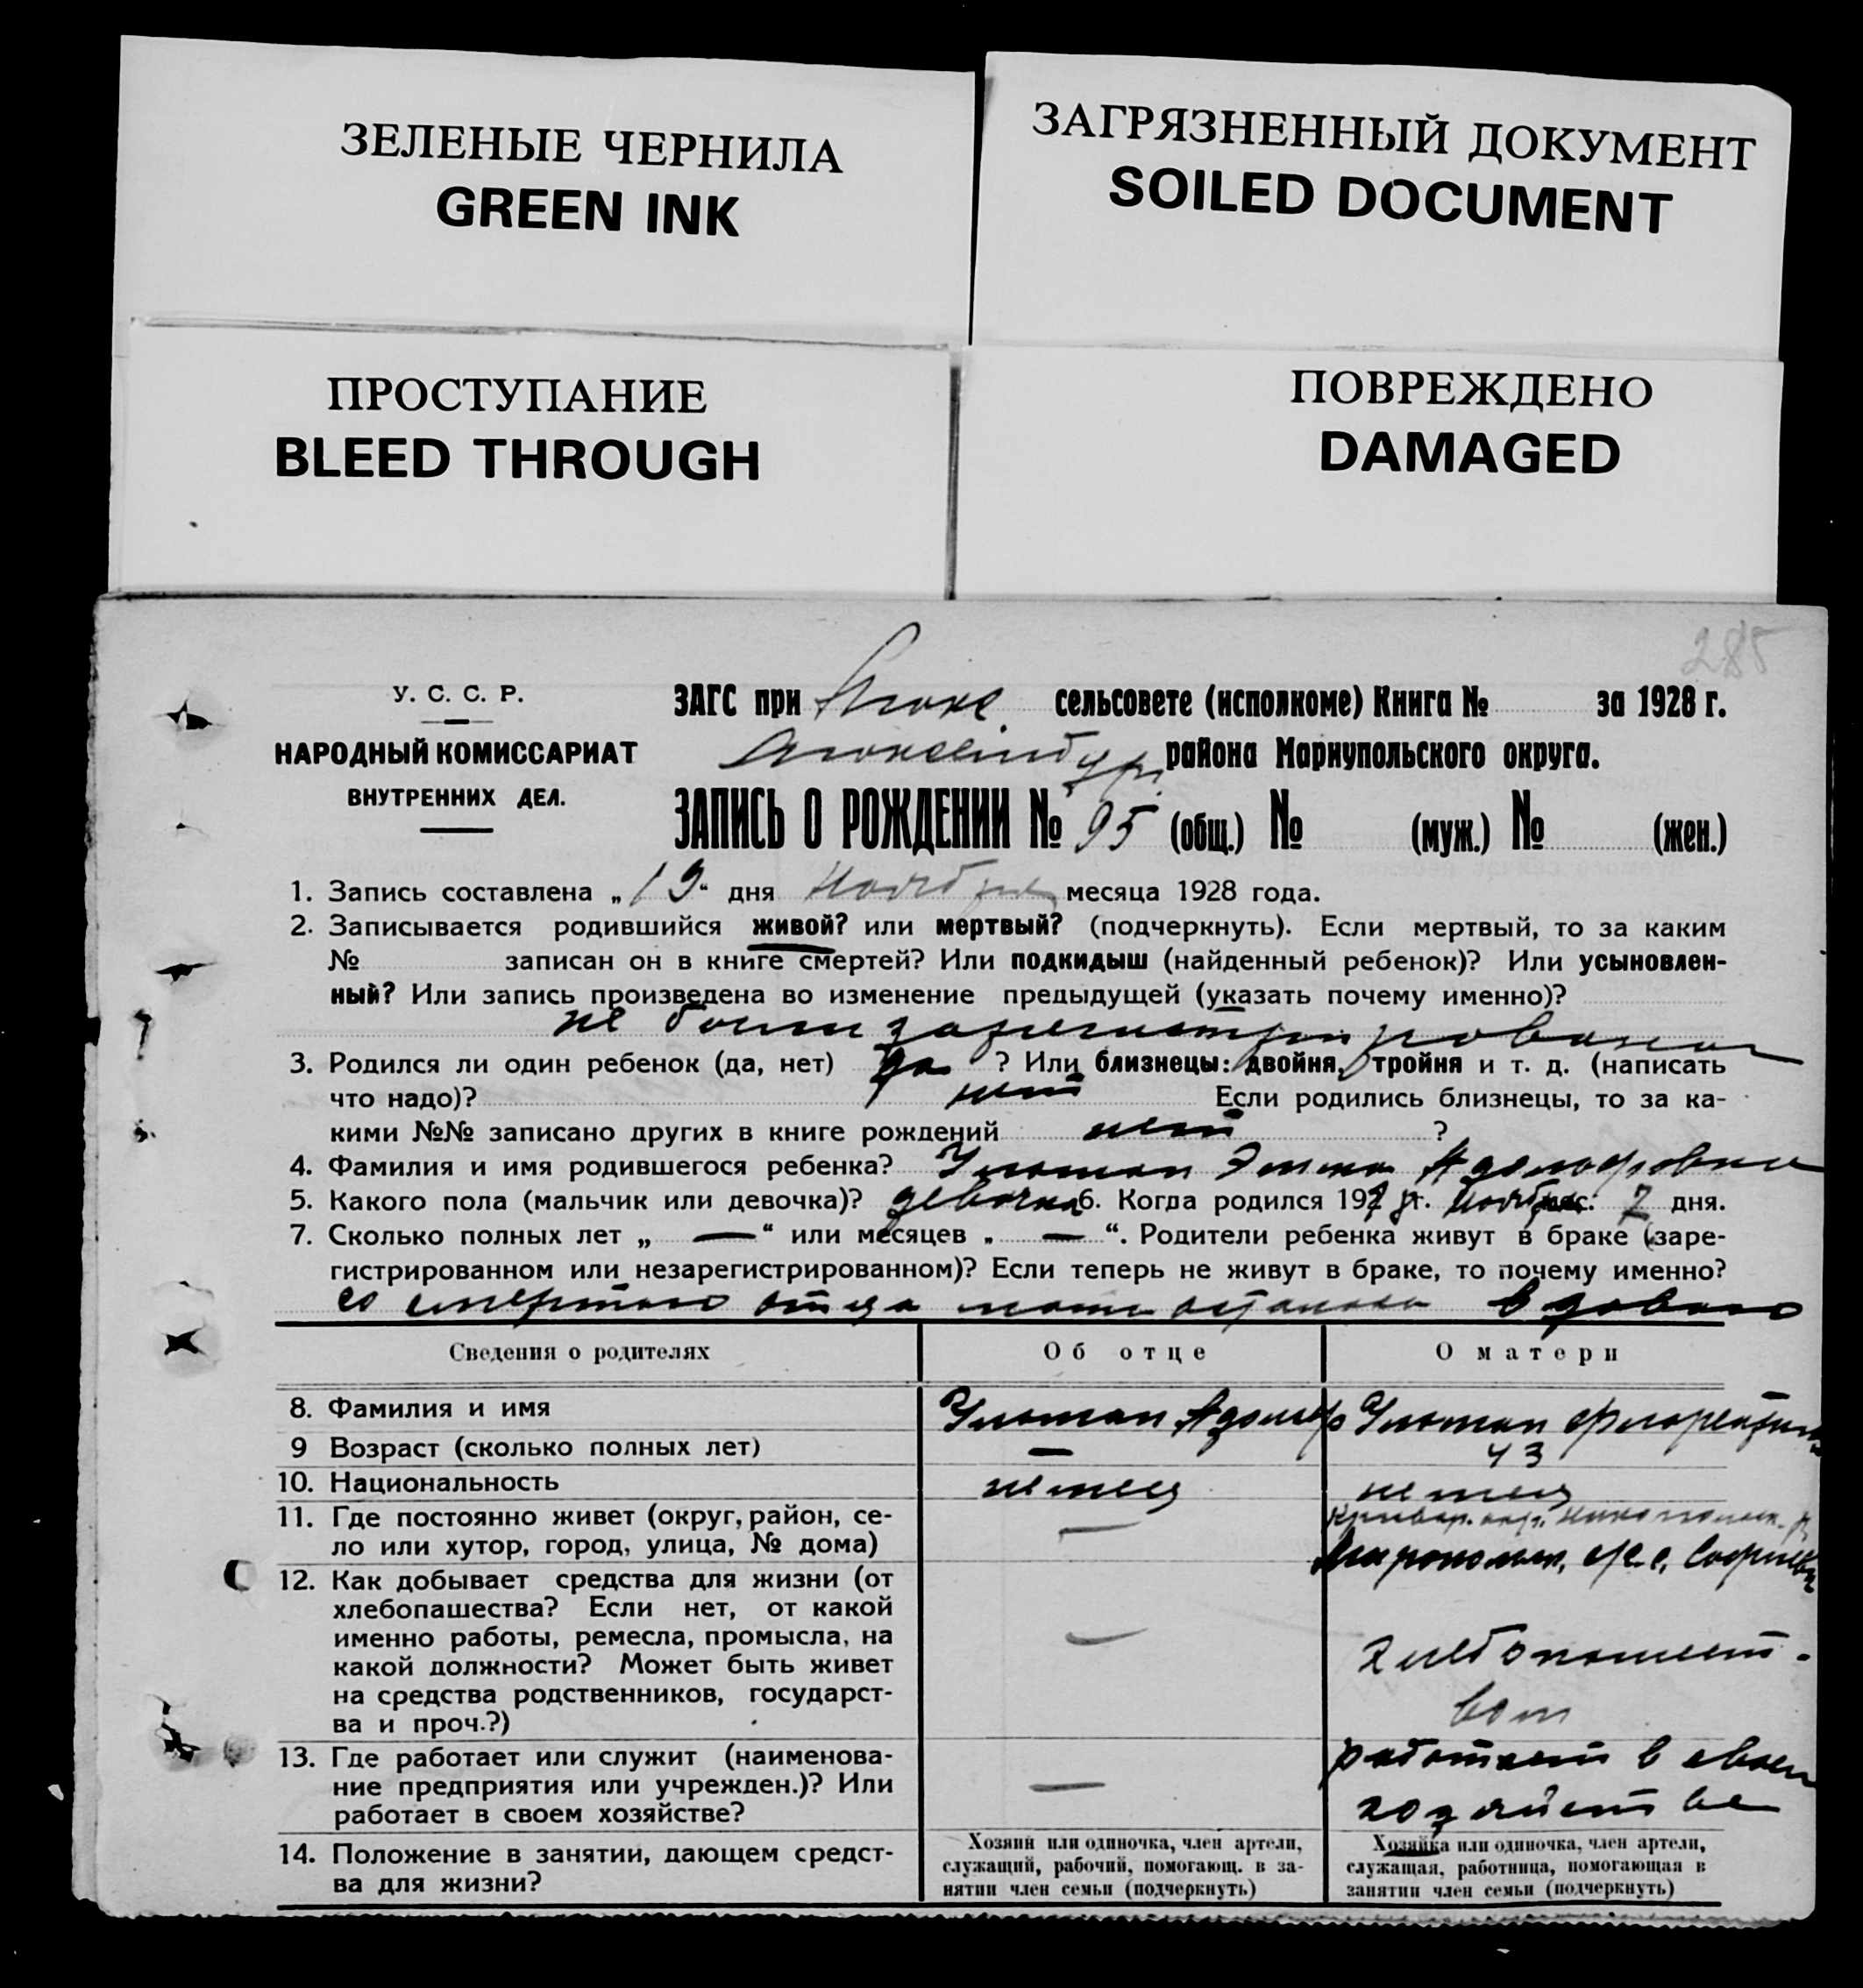 ЗЕЛЕНЫЕ ЧЕРНИЛА
GREEN INK
ЗАГРЯЗНЕННЫЙ ДОКУМЕНТ
SOILED DOCUMENT
ПРОСТУПАНИЕ
BLEED THROUGH
ПОВРЕЖДЕНО
DAMAGED
285
У. С. С. Р.
НАРОДНЫЙ КОМИССАРИАТ
ВНУТРЕННИХ ДЕЛ.
ЗАГС при Люкс. сельсовете (исполкоме) Книга № за 1928 г.
Люксембур. района Мариупольского округа.
ЗАПИСЬ О РОЖДЕНИИ № 95 (общ.) № (муж.) № (жен.)
1. Запись составлена „19“ дня Ноября месяца 1928 года.
2. Записывается родившийся живой? или мертвый? (подчеркнуть). Если мертвый, то за каким
№ записан он в книге смертей? Или подкидыш (найденный ребенок)? Или усыновлен-
ный? Или запись произведена во изменение предыдущей (указать почему именно)?
не была зарегистрирована
3. Родился ли один ребенок (да, нет) да ? Или близнецы: двойня, тройня и т. д. (написать
что надо)? нет Если родились близнецы, то за ка-
кими №№ записано других в книге рождений нет ?
4. Фамилия и имя родившегося ребенка? Ульман Эмма Адольфовна
5. Какого пола (мальчик или девочка)? девочка 6. Когда родился 192 г. Ноября с: 7 дня.
7. Сколько полных лет „ — “ или месяцев „ — “. Родители ребенка живут в браке (заре-
гистрированном или незарегистрированном)? Если теперь не живут в браке, то почему именно?
со смертью отца мать осталась вдовою
Сведения о родителях
Об отце
О матери
8. Фамилия и имя
Ульман Адольф
Ульман Флорентина
9 Возраст (сколько полных лет)
—
43
10. Национальность
немец
немец
11. Где постоянно живет (округ, район, се-
ло или хутор, город, улица, № дома)
—
Кривор. окр.
12. Как добывает средства для жизни (от
хлебопашества? Если нет, от какой
именно работы, ремесла, промысла, на
какой должности? Может быть живет
на средства родственников, государст-
ва и проч.?)
—
хлебопашест-
вом
13. Где работает или служит (наименова-
ние предприятия или учрежден.)? Или
работает в своем хозяйстве?
—
работает в своем
хозяйстве
14. Положение в занятии, дающем средст-
ва для жизни?
Хозяин или одиночка, член артели,
служащий, рабочий, помогающ. в за-
нятии член семьи (подчеркнуть)
Хозяйка или одиночка, член артели,
служащая, работница, помогающая в
занятии член семьи (подчеркнуть)